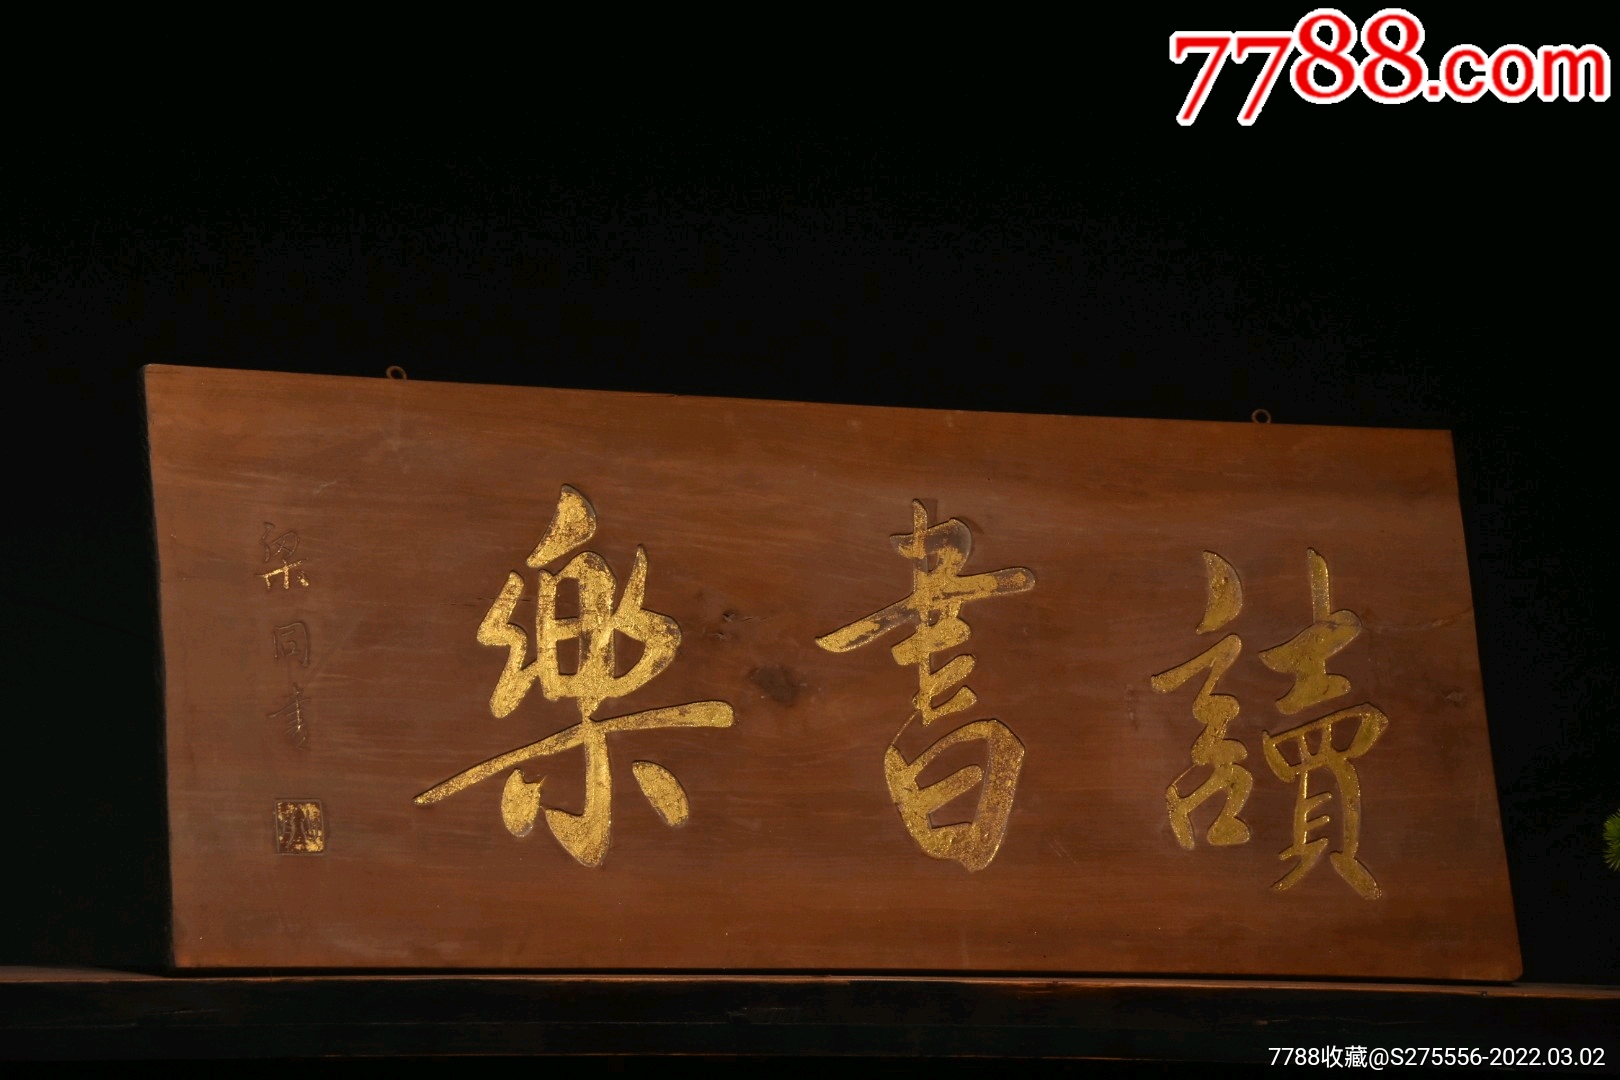 7788.com
讀書樂
梁同書
7788收藏@S275556-2022.03.02